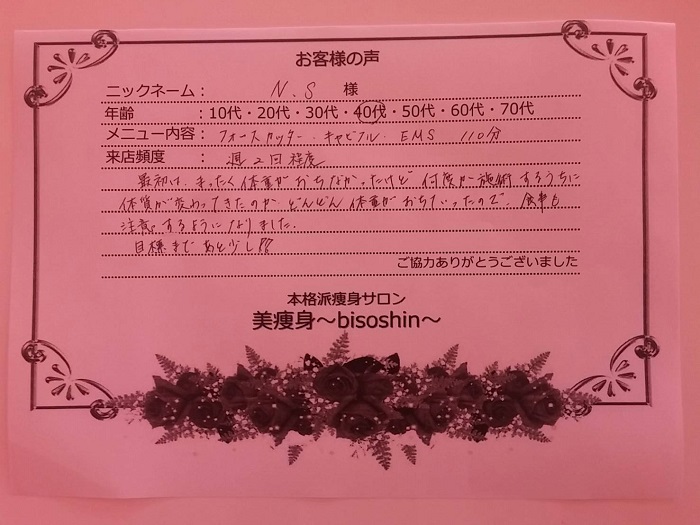 お客様の声
ニックネーム： N.S 様
年齢 ：10代・20代・30代・40代・50代・60代・70代
メニュー内容：フォースカッター・キャビフル・EMS 110分
来店頻度 ： 週2回程度
最初は、まったく体重がおちなかったけど 何度か施術するうちに
体質が変わってきたのか どんどん 体重がおちていったので、食事も
注意するようになりました。
目標まであと少し!!
ご協力ありがとうございました
本格派痩身サロン
美痩身～bisoshin～